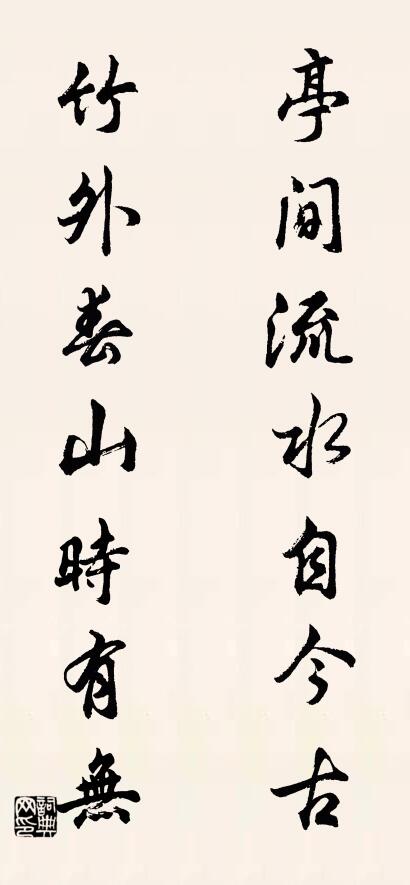 亭間流水自今古
竹外春山時有無
詞典網印